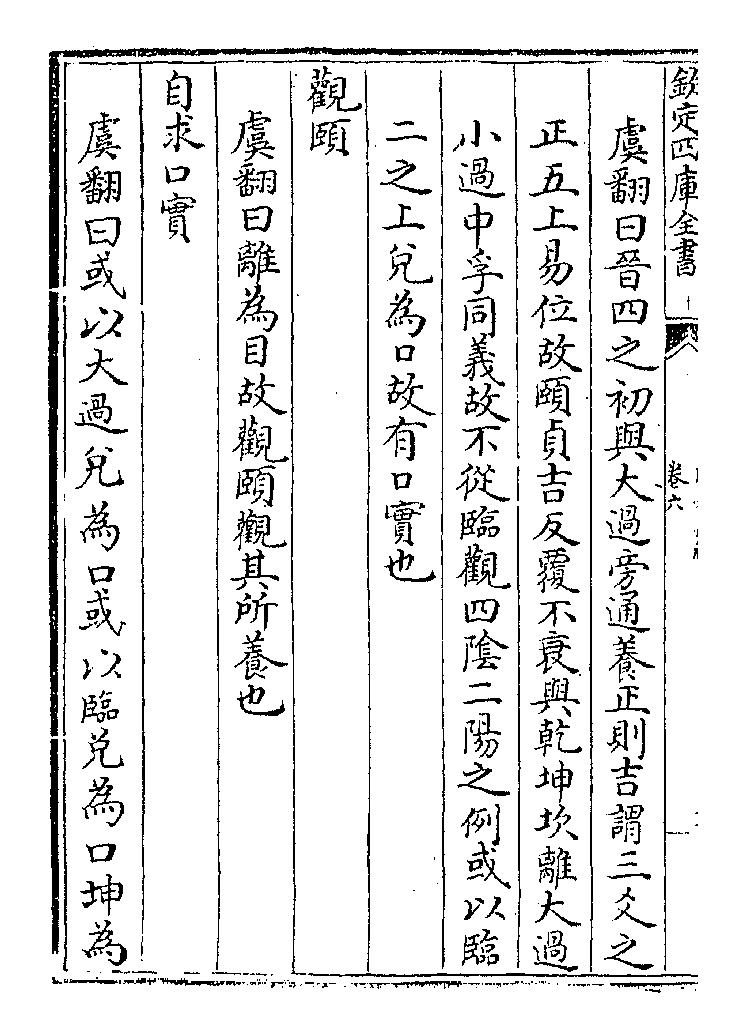 欽定四庫全書
卷六
虞翻曰晉四之初與大過旁通養正則吉謂三爻之
正五上易位故頤貞吉反覆不衰與乾坤坎離大過
小過中孚同義故不從臨觀四陰二陽之例或以臨
二之上兌為口故有口實也
觀頤
虞翻曰離為目故觀頤觀其所養也
自求口實
虞翻曰或以大過兌為口或以臨兌為口坤為